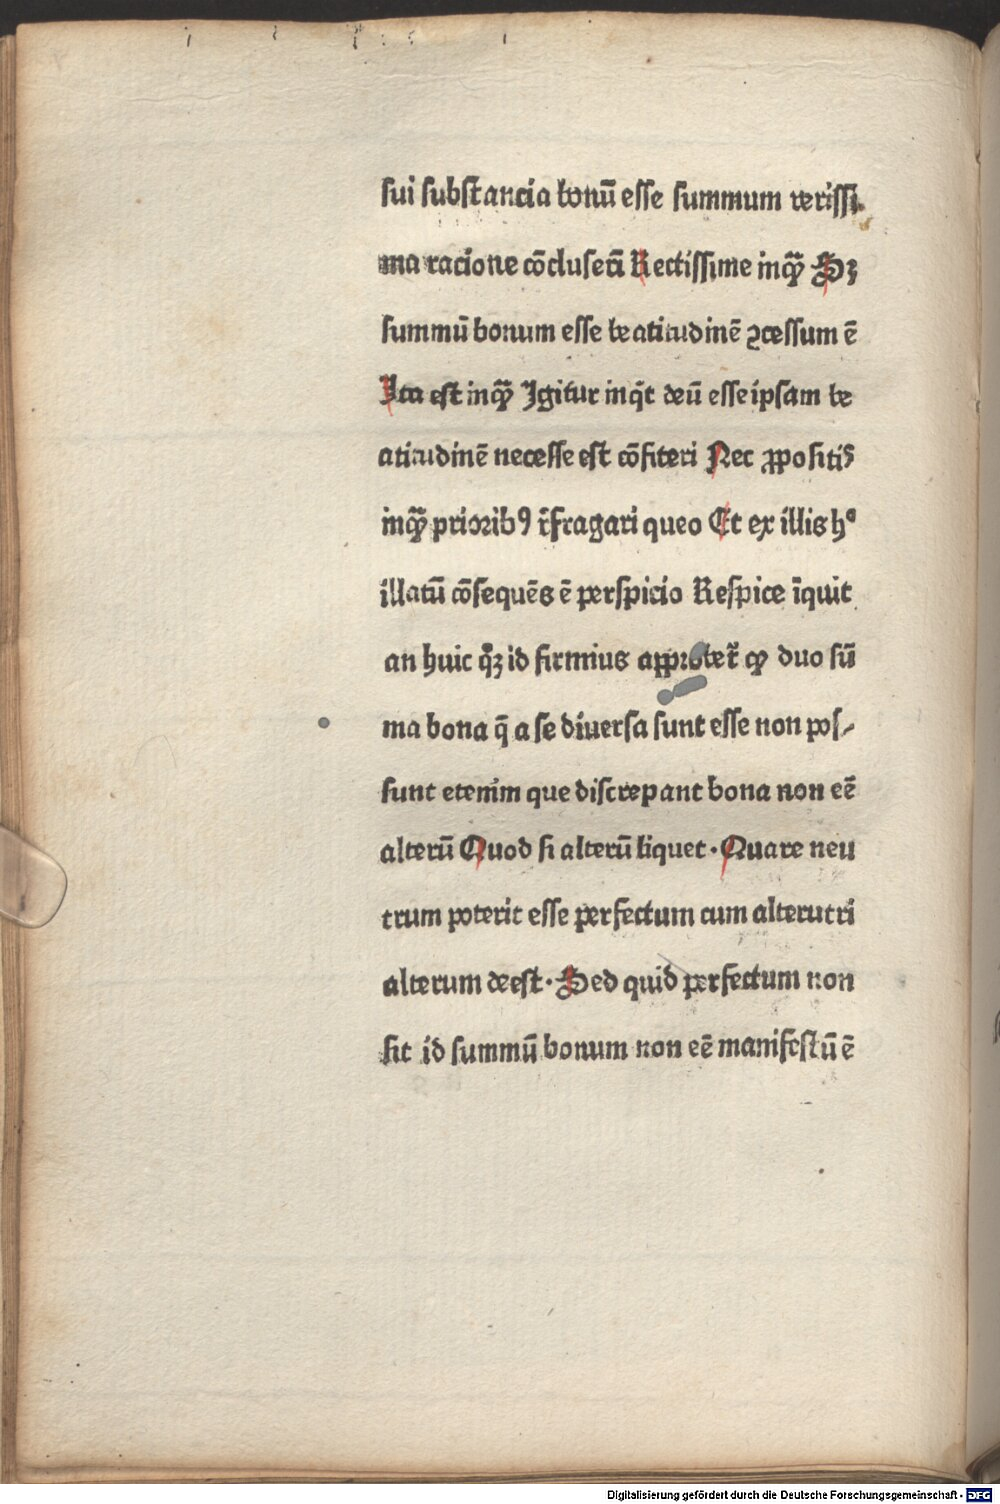 sui substancia bonū esse summum verissi
ma racione cōcluseri Rectissime inqͣꝫ Sꝫ
summū bonum esse beatitudinē ꝯcessum ē
Ita est inqͣꝫ Igitur inqͥt deū esse ipsam be
atitudinē necesse est cōfiteri Nec ꝓpositis
inqͣꝫ prioribꝰ r̄fragari queo Et ex illis hͦ
illatū cōsequēs ē perspicio Respice īquit
an huic qͦꝫ id firmius approbet̄ ꝙ duo sū
ma bona q̄ a se diuersa sunt esse non pos⸗
sunt etenim que discrepant bona non eē
alterū Quod si alterū liquet · Quare neu
trum poterit esse perfectum cum alterutri
alterum deest · Sed quid perfectum non
sit id summū bonum non eē manifestū ē
Digitalisierung gefördert durch die Deutsche Forschungsgemeinschaft - DFG